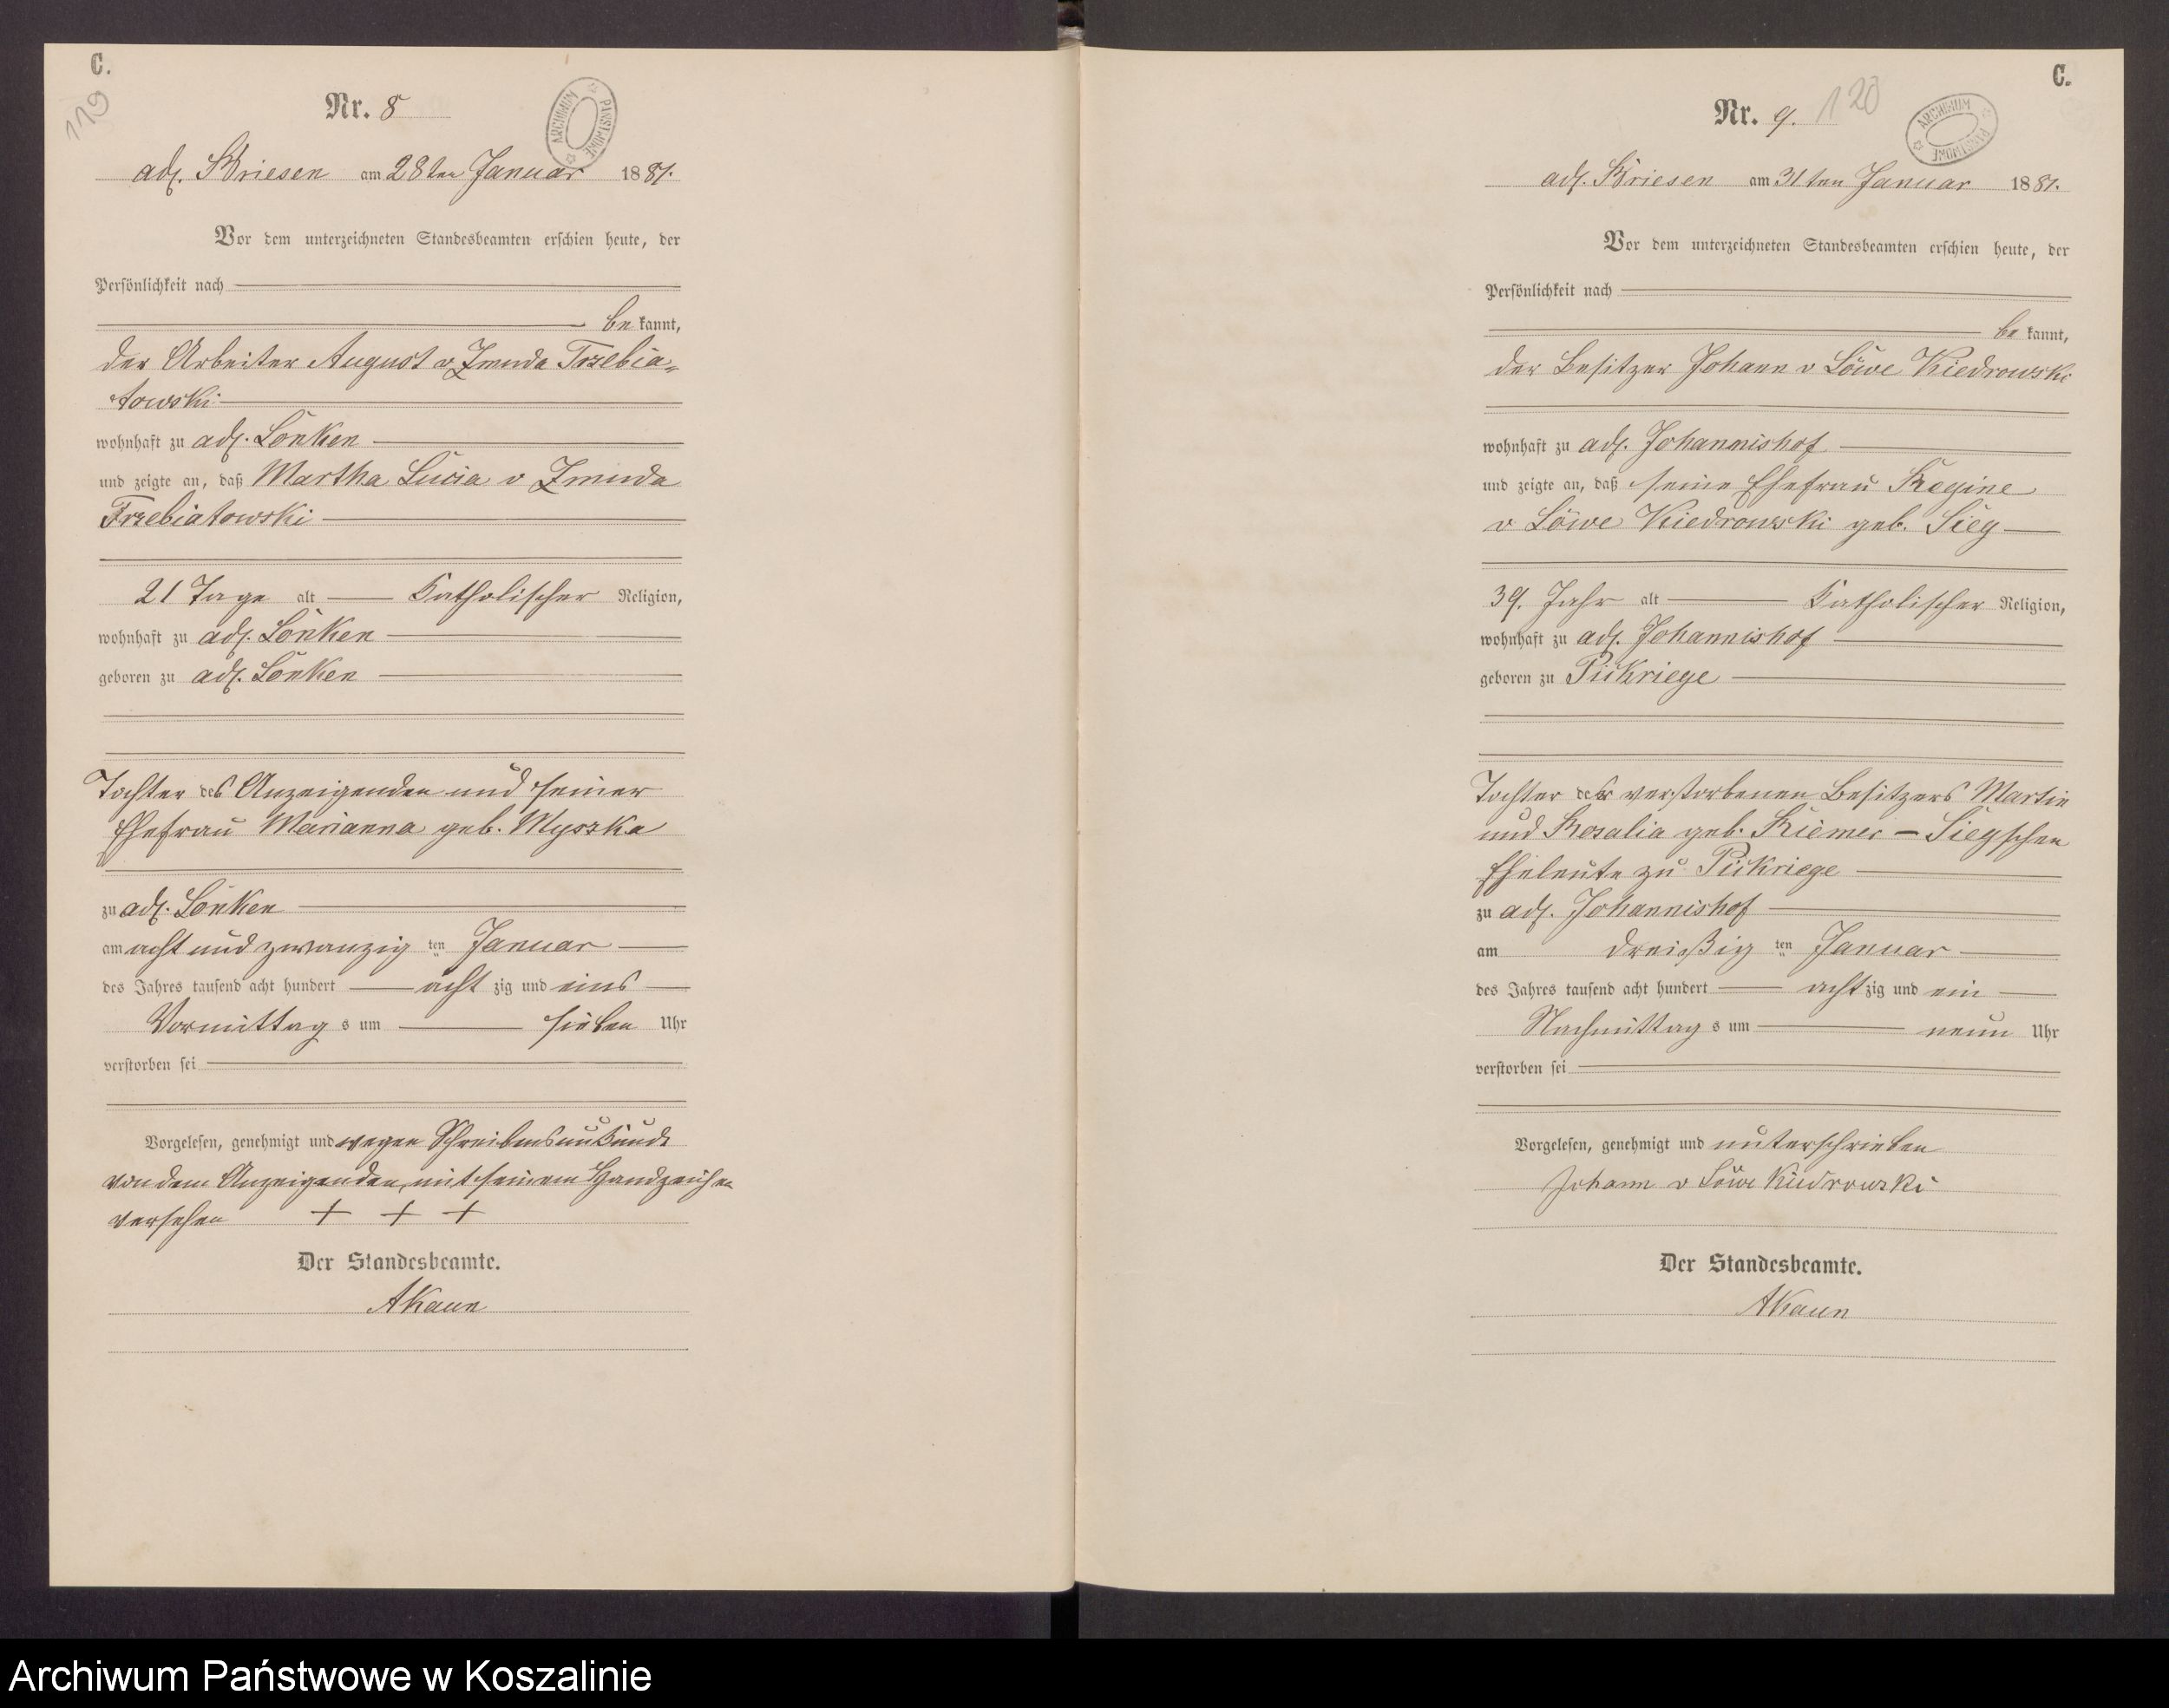 C.
119
Nr. 8
ARCHIWUM PAŃSTWOWE
adl. Briesen am 28ten Januar 1881.
Vor dem unterzeichneten Standesbeamten erschien heute, der
Persönlichkeit nach
be kannt,
der Arbeiter August v Zmuda Trzebia-
towski
wohnhaft zu adl. Lonken
und zeigte an, daß Martha Lucia v Zmuda
Trzebiatowski
21 Tage alt Katholischer Religion,
wohnhaft zu adl. Lonken
geboren zu adl. Lonken
Tochter des Anzeigenden und seiner
Ehefrau Marianna geb. Myszka
zu adl. Lonken
am acht und zwanzig ten Januar
des Jahres tausend acht hundert acht zig und eins
Vormittag s um sieben Uhr
verstorben sei
Vorgelesen, genehmigt und wegen Schreibensunkunde
von dem Anzeigenden, mit seinem Handzeichen
versehen + + +
Der Standesbeamte.
AKaun
C.
Nr. 9. 120
ARCHIWUM PAŃSTWOWE
adl. Briesen am 31ten Januar 1881.
Vor dem unterzeichneten Standesbeamten erschien heute, der
Persönlichkeit nach
be kannt,
der Besitzer Johann v Löwe Kiedrowski
wohnhaft zu adl. Johannishof
und zeigte an, daß seine Ehefrau Regine
v Löwe Kiedrowski geb. Sieg
39. Jahr alt Katholischer Religion,
wohnhaft zu adl. Johannishof
geboren zu Pickriege
Tochter der verstorbenen Besitzers Martin
und Rosalia geb. Riemer – Siegschen
Eheleute zu Pickriege
zu adl. Johannishof
am dreißig ten Januar
des Jahres tausend acht hundert acht zig und ein
Nachmittag s um neun Uhr
verstorben sei
Vorgelesen, genehmigt und unterschrieben
Johann v Löwe Kiedrowski
Der Standesbeamte.
AKaun
Archiwum Państwowe w Koszalinie